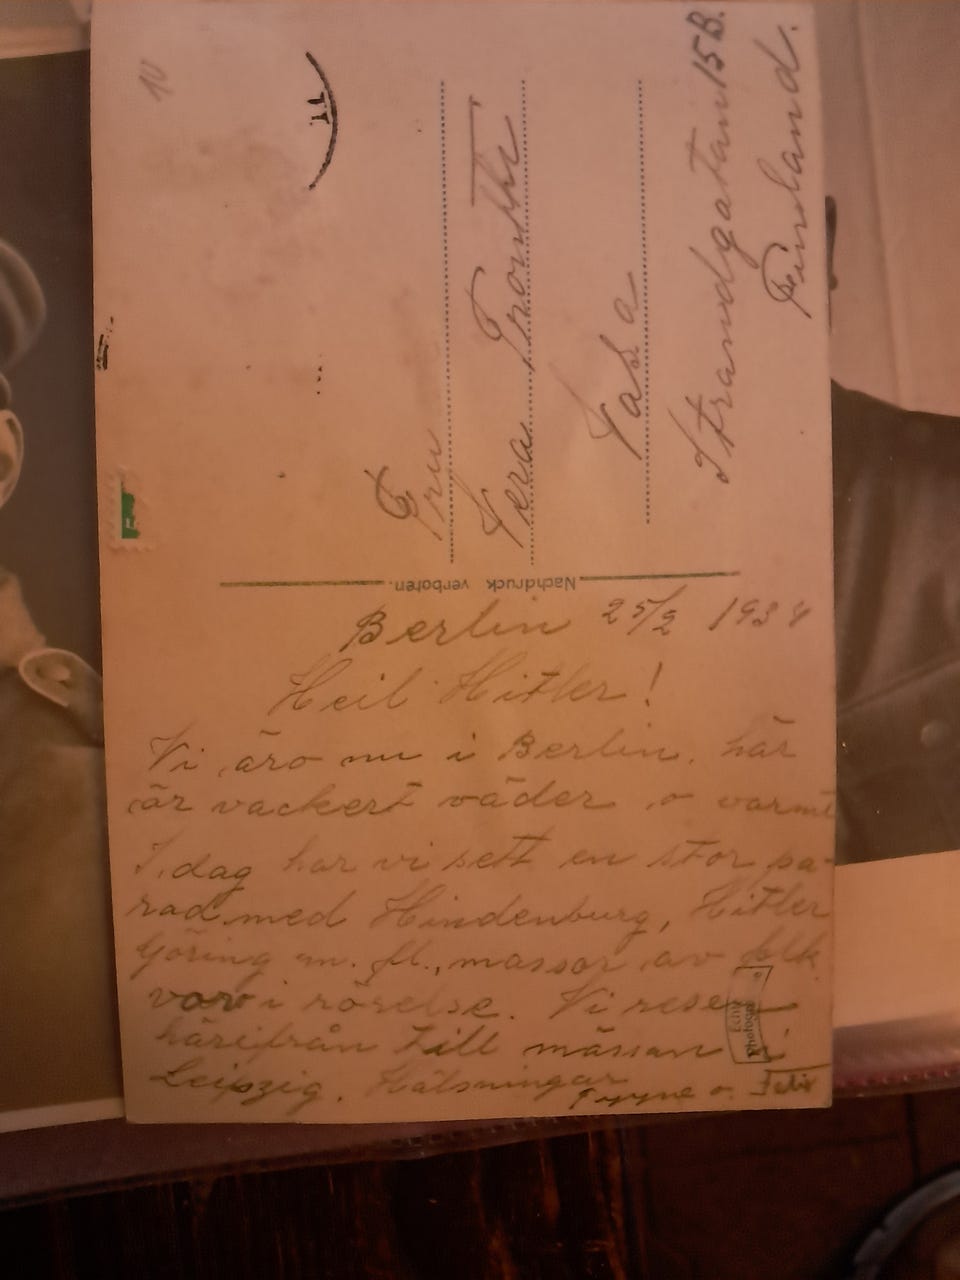 10
Fru
Vera
Vasa
Strandgatan 15 B.
Finland.
Nachdruck verboten.
Berlin 25/2 1934
Heil Hitler!
Vi äro nu i Berlin. här
är vackert väder o varmt
I dag har vi sett en stor pa-
rad med Hindenburg, Hitler
Göring m. fl., massor av folk
voro i rörelse. Vi reser
härifrån till mässan i
Leipzig. Hälsningar
Tyyne o. Felix
Echte
Photogr